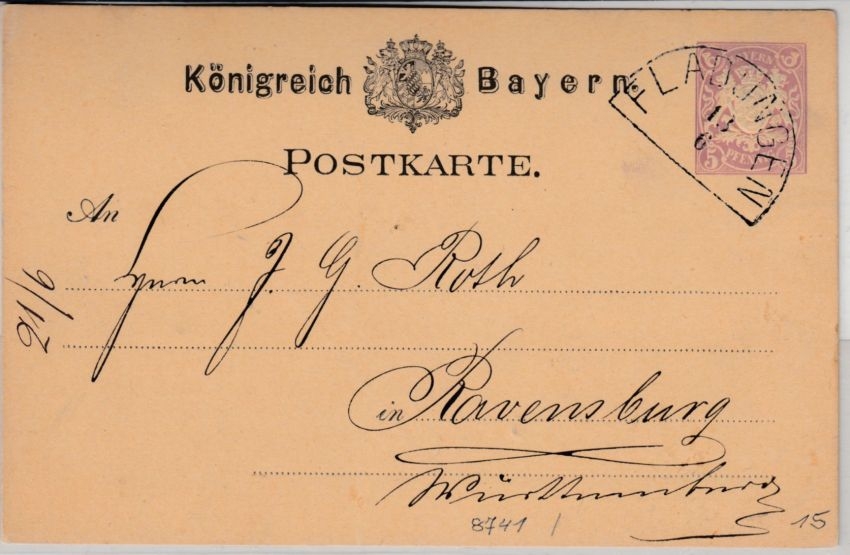 Königreich Bayern.
FLADUNGEN
13
6
BAYERN
5 PFENNIG 5
POSTKARTE.
An
Herrn J. G. Roth
21/6
in Ravensburg
Württemberg
8741 /
15